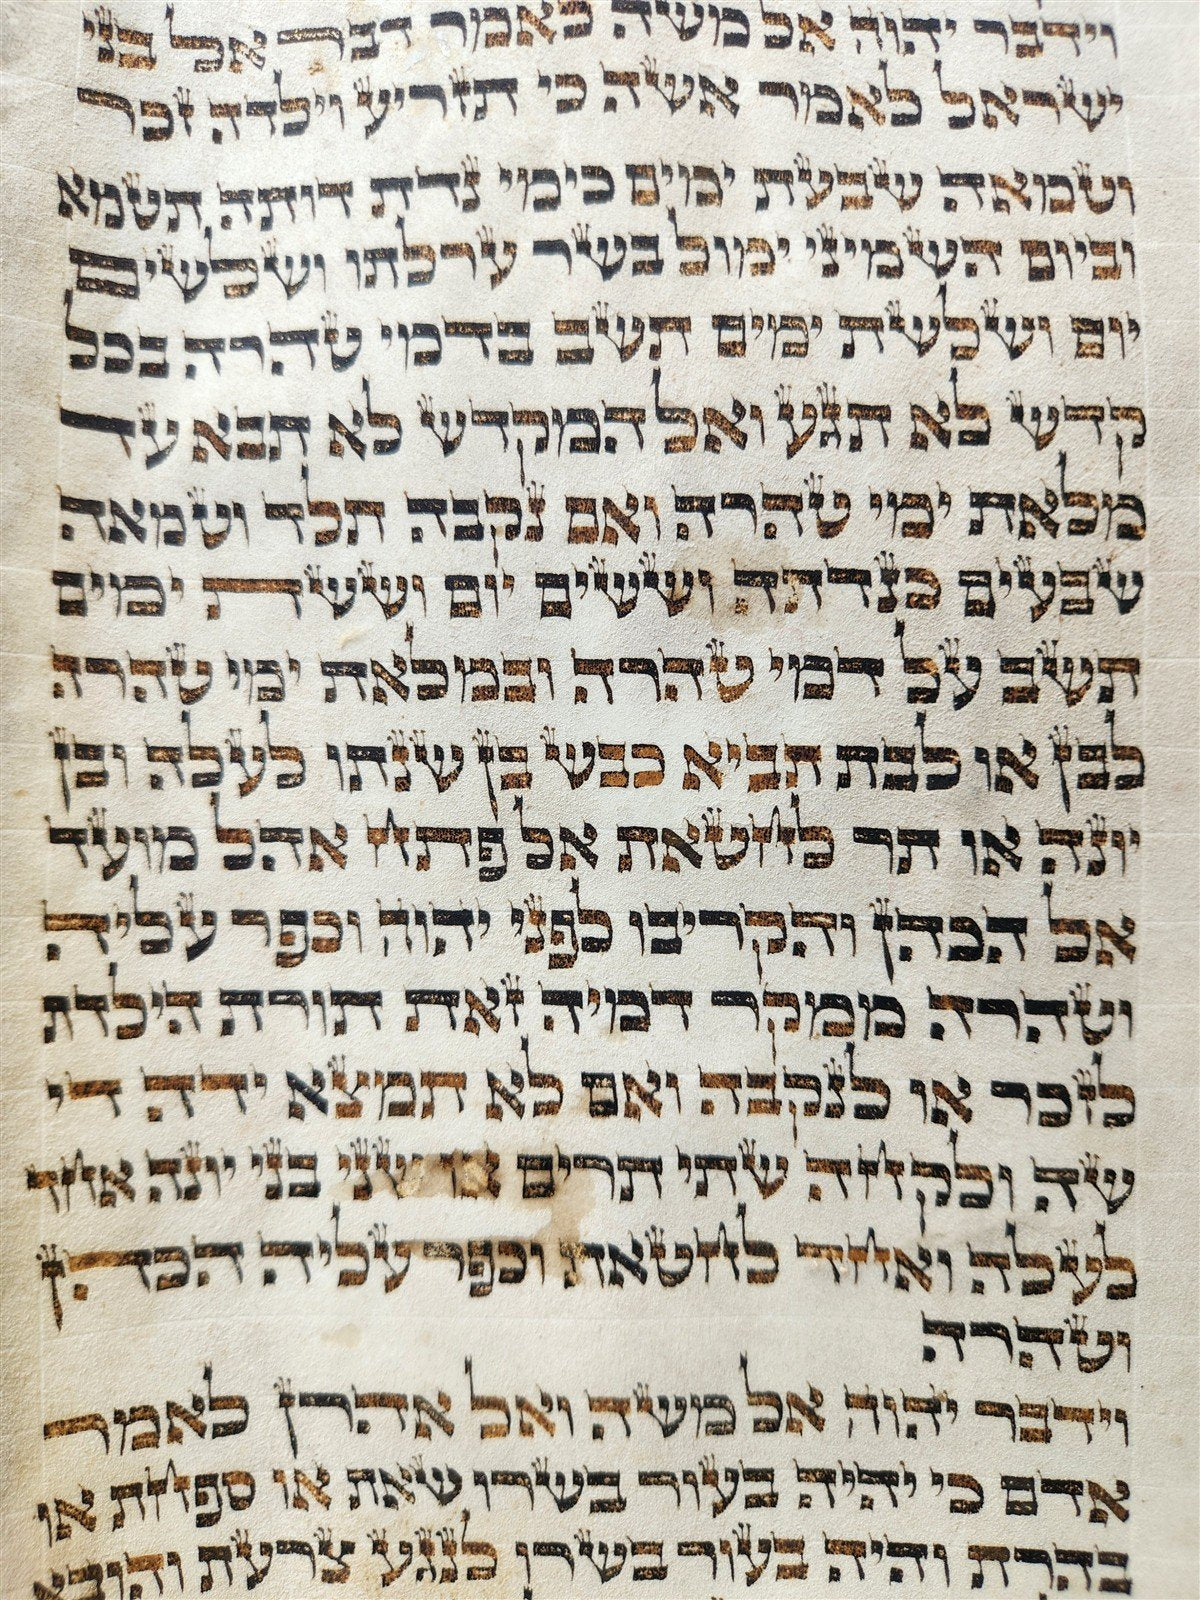 וידבר יהוה אל משה לאמר דבר אל בני
ישראל לאמר אשה כי תזריע וילדה זכר
וטמאה שבעת ימים כימי נדת דותה תטמא
וביום השמיני ימול בשר ערלתו ושלשים
יום ושלשת ימים תשב בדמי טהרה בכל
קדש לא תגע ואל המקדש לא תבא עד
מלאת ימי טהרה ואם נקבה תלד וטמאה
שבעים כנדתה וששים יום וששת ימים
תשב על דמי טהרה ובמלאת ימי טהרה
לבן או לבת תביא כבש בן שנתו לעלה ובן
יונה או תר לחטאת אל פתח אהל מועד
אל הכהן והקריבו לפני יהוה וכפר עליה
וטהרה ממקר דמיה זאת תורת הילדת
לזכר או לנקבה ואם לא תמצא ידה די
שה ולקחה שתי תרים או שני בני יונה אחד
לעלה ואחד לחטאת וכפר עליה הכהן
וטהרה
וידבר יהוה אל משה ואל אהרן לאמר
אדם כי יהיה בעור בשרו שאת או ספחת או
בהרת והיה בעור בשרו לנגע צרעת והובא